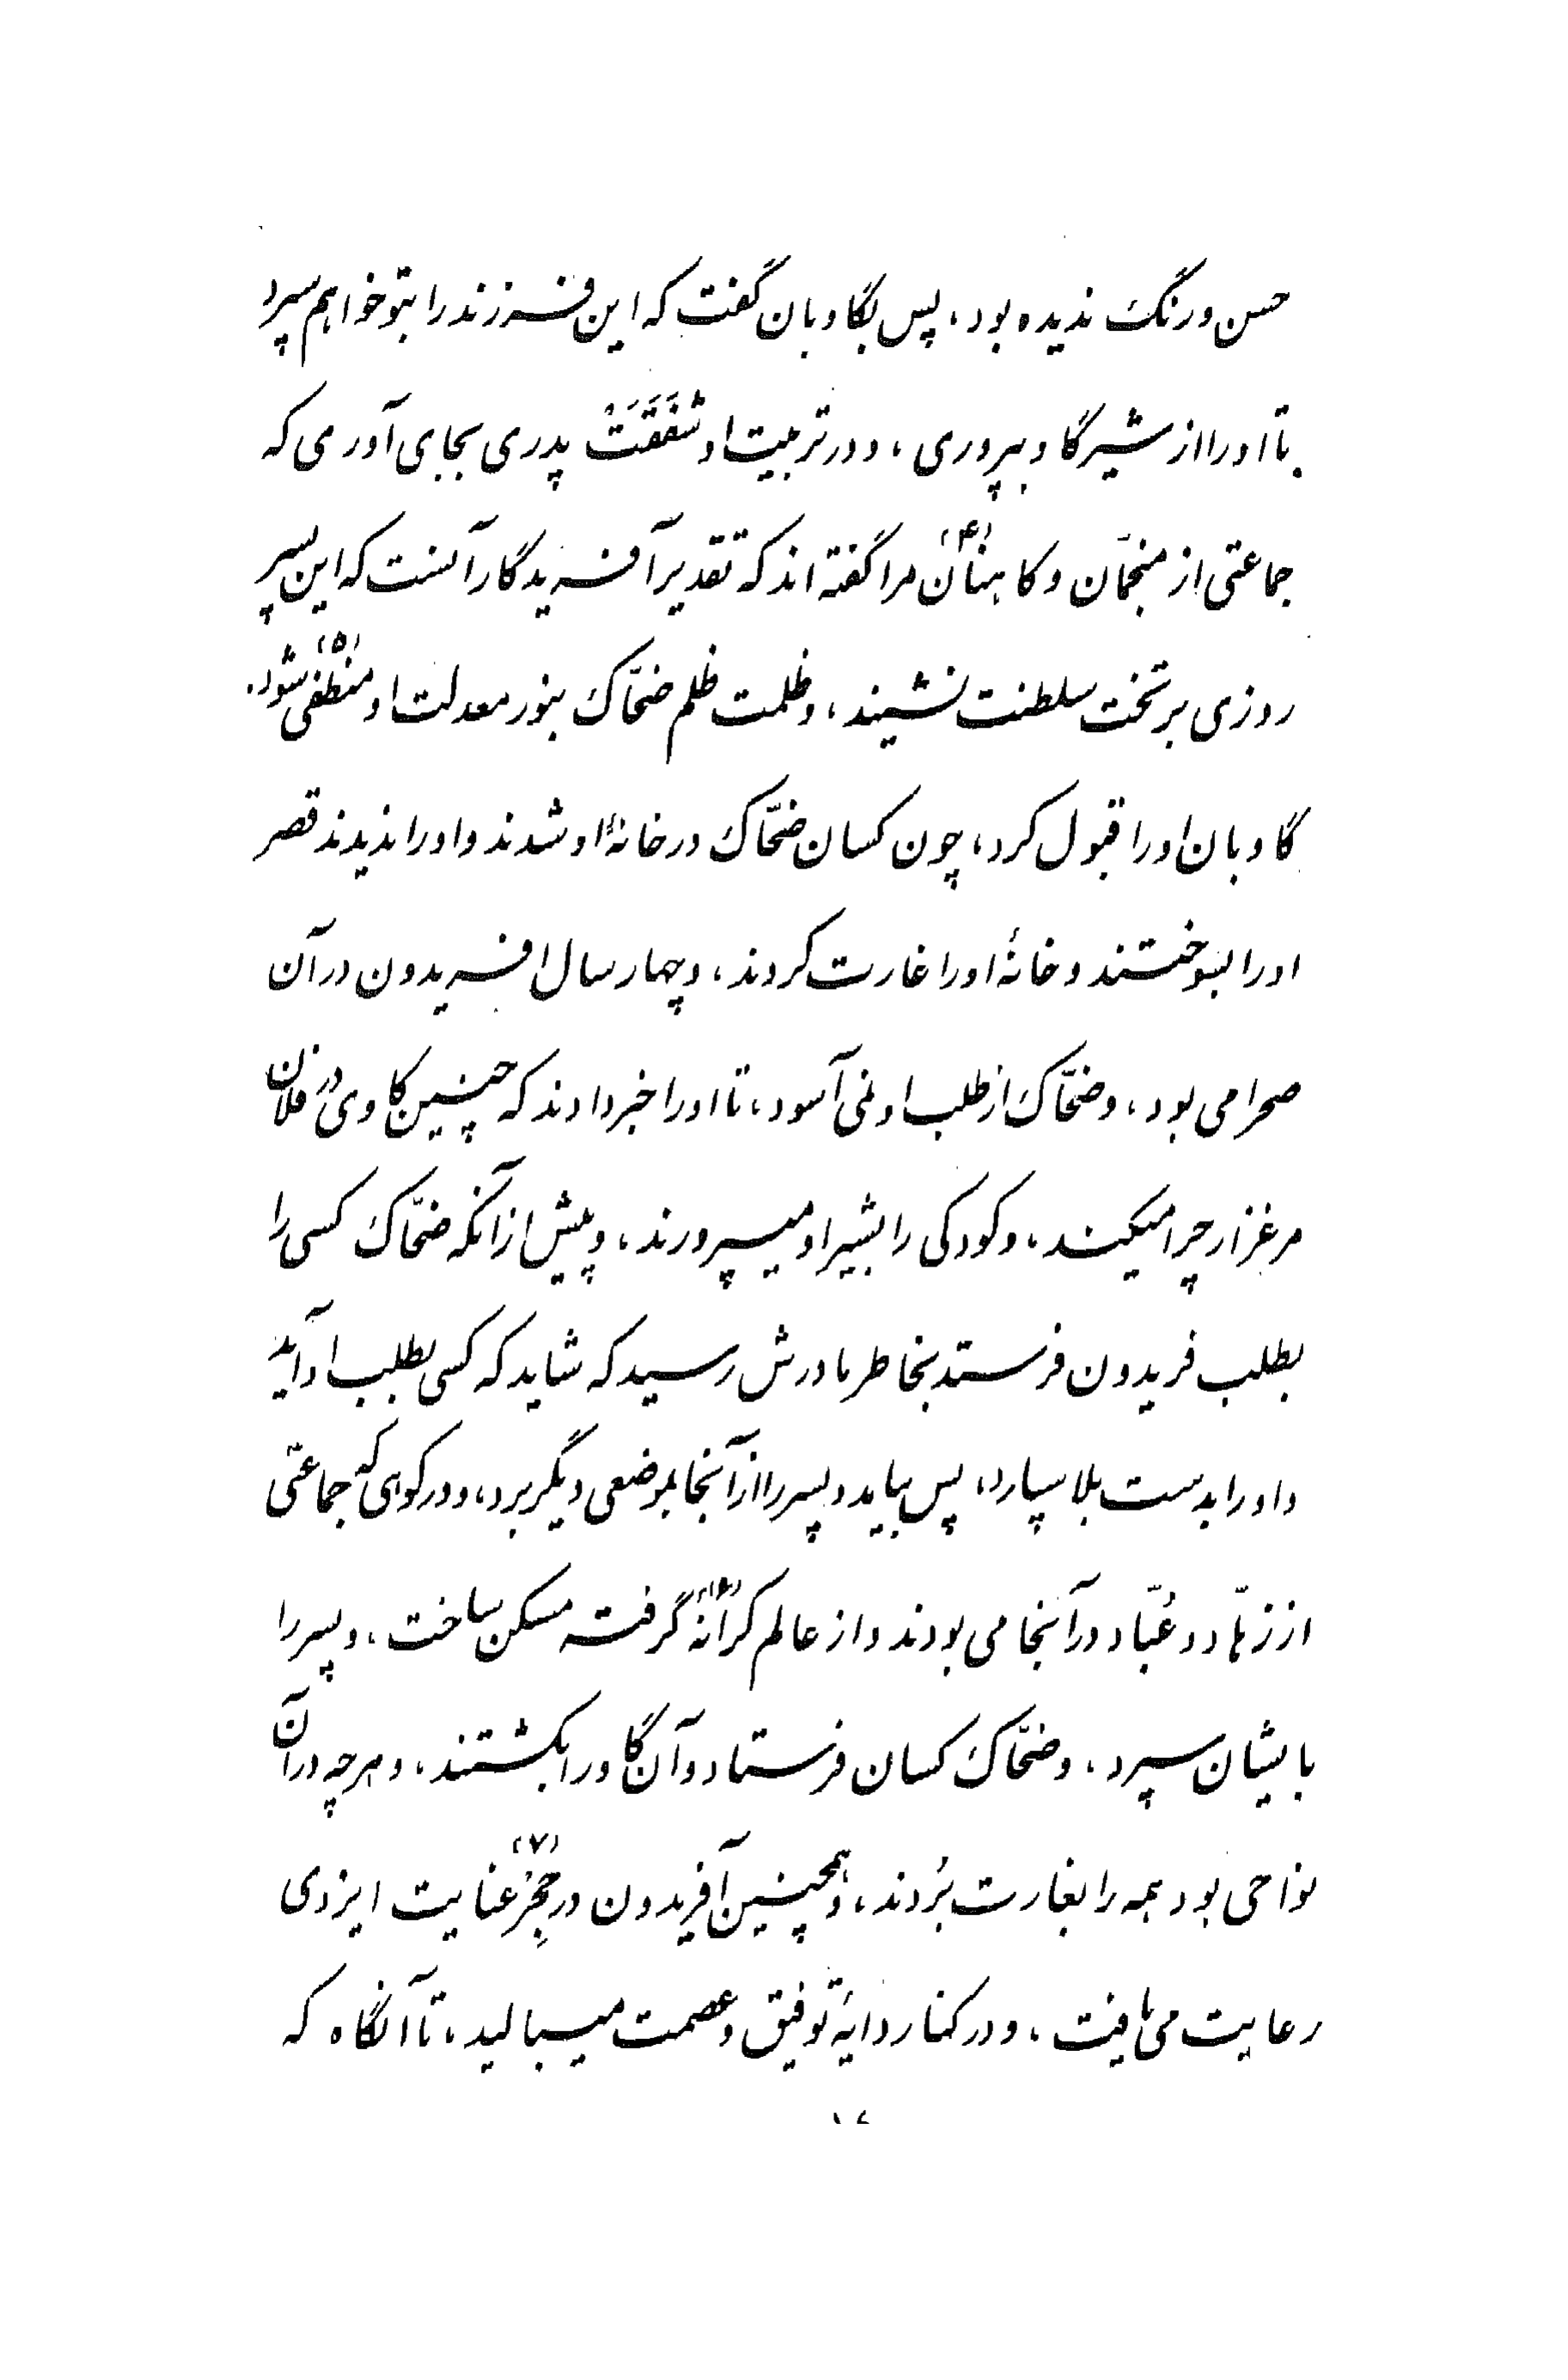 حسن و رنگ ندیده بود، پس بگاوبان گفت که این فرزند را بتو خواهم سپرد
تا او را از شیر گاو بپروری، و در تربیت او شَفَقَتْ پدری بجای آوری که
جماعتی از منجّمان و کاهنان(۴) مرا گفته اند که تقدیر آفریدگار آنست که این پسر
روزی بر تخت سلطنت نشیند، و ظلمت ظلم ضحّاک بنور معدلت او منطفی(۵) شود.
گاوبان او را قبول کرد، چون کسان ضحّاک در خانهٔ او شدند و او را ندیدند قصر
او را بسوختند و خانهٔ او را غارت کردند، و چهار سال افریدون در آن
صحرا می بود، و ضحّاک از طلب او نمی آسود، تا او را خبر دادند که چنین گاوی در فلان
مرغزار چرا میکند، و کودکی را بشیر او میپرورند، و پیش از آنکه ضحّاک کسی را
بطلب فریدون فرستد بخاطر مادرش رسید که شاید که کسی بطلب او آید
و او را بدست بلا سپارد، پس بیاید و پسر را از آنجا بموضعی دیگر برد، و در کوهی که جماعتی
از زهّاد و عُبّاد در آنجا می بودند و از عالم کرانهٔ(۶) گرفته مسکن ساخت، و پسر را
بایشان سپرد، و ضحّاک کسان فرستاد و آن گاو را بکشتند، و هرچه در آن
نواحی بود همه را بغارت بُردند، و همچنین آفریدون در حِجْرِ(۷) عنایت ایزدی
رعایت می یافت، و در کنار دایهٔ توفیق و عصمت میبالید، تا آنگاه که